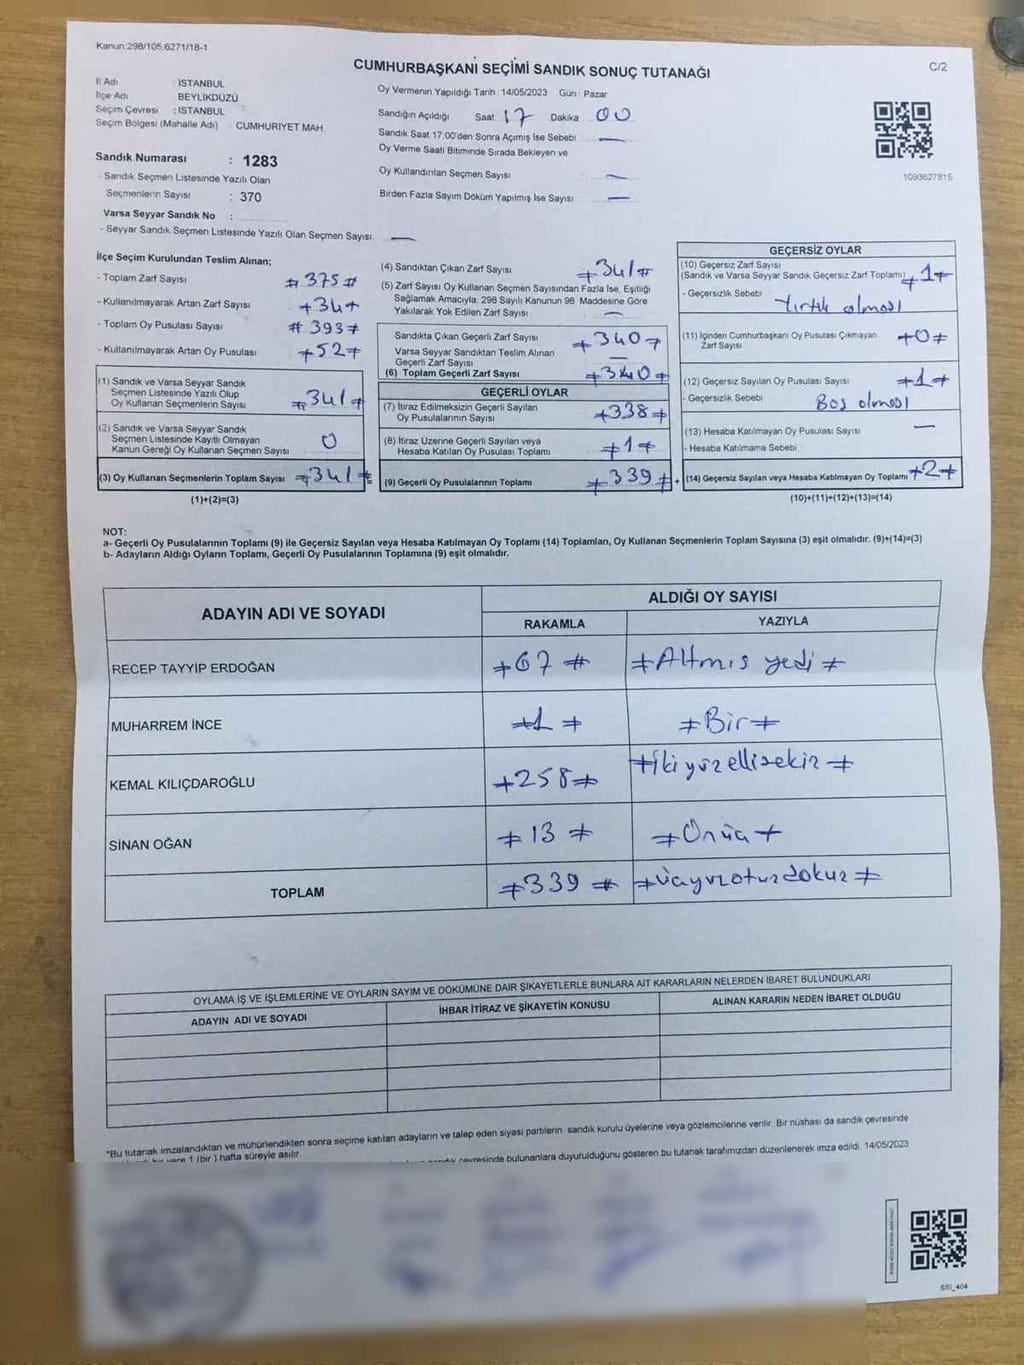 Kanun:298/105,6271/18-1
C/2
CUMHURBAŞKANI SEÇİMİ SANDIK SONUÇ TUTANAĞI
İl Adı : İSTANBUL
İlçe Adı BEYLİKDÜZÜ
Seçim Çevresi : İSTANBUL
Seçim Bölgesi (Mahalle Adı) : CUMHURİYET MAH.
Sandık Numarası : 1283
- Sandık Seçmen Listesinde Yazılı Olan
Seçmenlerin Sayısı : 370
Varsa Seyyar Sandık No :
- Seyyar Sandık Seçmen Listesinde Yazılı Olan Seçmen Sayısı: —
Oy Vermenin Yapıldığı Tarih : 14/05/2023 Gün : Pazar
Sandığın Açıldığı Saat 17 Dakika 00
Sandık Saat 17:00'den Sonra Açımış İse Sebebi —
Oy Verme Saati Bitiminde Sırada Bekleyen ve
Oy Kullandırılan Seçmen Sayısı —
Birden Fazla Sayım Döküm Yapılmış İse Sayısı —
1093627815
İlçe Seçim Kurulundan Teslim Alınan:
- Toplam Zarf Sayısı # 375 #
- Kullanılmayarak Artan Zarf Sayısı ≠ 34 ≠
- Toplam Oy Pusulası Sayısı # 393 ≠
- Kullanılmayarak Artan Oy Pusulası ≠ 52 ≠
(1) Sandık ve Varsa Seyyar Sandık
Seçmen Listesinde Yazılı Olup
Oy Kullanan Seçmenlerin Sayısı ≠ 341 ≠
(2) Sandık ve Varsa Seyyar Sandık
Seçmen Listesinde Kayıtlı Olmayan
Kanun Gereği Oy Kullanan Seçmen Sayısı 0
(3) Oy Kullanan Seçmenlerin Toplam Sayısı ≠ 341 ≠
(1)+(2)=(3)
(4) Sandıktan Çıkan Zarf Sayısı ≠ 341 #
(5) Zarf Sayısı Oy Kullanan Seçmen Sayısından Fazla İse, Eşitliği
Sağlamak Amacıyla, 298 Sayılı Kanunun 98 Maddesine Göre
Yakılarak Yok Edilen Zarf Sayısı —
Sandıkta Çıkan Geçerli Zarf Sayısı ≠ 340 ≠
Varsa Seyyar Sandıktan Teslim Alınan —
Geçerli Zarf Sayısı
(6) Toplam Geçerli Zarf Sayısı ≠ 340 ≠
GEÇERLİ OYLAR
(7) İtiraz Edilmeksizin Geçerli Sayılan
Oy Pusulalarının Sayısı ≠ 338 ≠
(8) İtiraz Üzerine Geçerli Sayılan veya
Hesaba Katılan Oy Pusulası Toplamı ≠ 1 ≠
(9) Geçerli Oy Pusulalarının Toplamı ≠ 339 ≠
GEÇERSİZ OYLAR
(10) Geçersiz Zarf Sayısı
(Sandık ve Varsa Seyyar Sandık Geçersiz Zarf Toplamı) ≠ 1 ≠
- Geçersizlik Sebebi Yırtık olması
(11) İçinden Cumhurbaşkanı Oy Pusulası Çıkmayan
Zarf Sayısı ≠ 0 ≠
(12) Geçersiz Sayılan Oy Pusulası Sayısı ≠ 1 ≠
- Geçersizlik Sebebi Boş olması
(13) Hesaba Katılmayan Oy Pusulası Sayısı —
- Hesaba Katılmama Sebebi
+ (14) Geçersiz Sayılan veya Hesaba Katılmayan Oy Toplamı ≠ 2 ≠
(10)+(11)+(12)+(13)=(14)
NOT:
a- Geçerli Oy Pusulalarının Toplamı (9) ile Geçersiz Sayılan veya Hesaba Katılmayan Oy Toplamı (14) Toplamları, Oy Kullanan Seçmenlerin Toplam Sayısına (3) eşit olmalıdır. (9)+(14)=(3)
b- Adayların Aldığı Oyların Toplamı, Geçerli Oy Pusulalarının Toplamına (9) eşit olmalıdır.
ADAYIN ADI VE SOYADI
ALDIĞI OY SAYISI
RAKAMLA YAZIYLA
RECEP TAYYİP ERDOĞAN ≠ 67 ≠ ≠ Altmış yedi ≠
MUHARREM İNCE ≠ 1 ≠ ≠ Bir ≠
KEMAL KILIÇDAROĞLU ≠ 258 ≠ ≠ ikiyüzellisekiz ≠
SİNAN OĞAN ≠ 13 ≠ ≠ Onüç ≠
TOPLAM ≠ 339 ≠ ≠ üçyüzotuzdokuz ≠
OYLAMA İŞ VE İŞLEMLERİNE VE OYLARIN SAYIM VE DÖKÜMÜNE DAİR ŞİKAYETLERLE BUNLARA AİT KARARLARIN NELERDEN İBARET BULUNDUKLARI
ADAYIN ADI VE SOYADI İHBAR İTİRAZ VE ŞİKAYETİN KONUSU ALINAN KARARIN NEDEN İBARET OLDUĞU
*Bu tutanak imzalandıktan ve mühürlendikten sonra seçime katılan adayların ve talep eden siyasi partilerin sandık kurulu üyelerine veya gözlemcilerine verilir. Bir nüshası da sandık çevresinde
bir yere 1 (bir) hafta süreyle asılır.
sandık çevresinde bulunanlara duyurulduğunu gösteren bu tutanak tarafımızdan düzenlenerek imza edildi. 14/05/2023
SSI_404